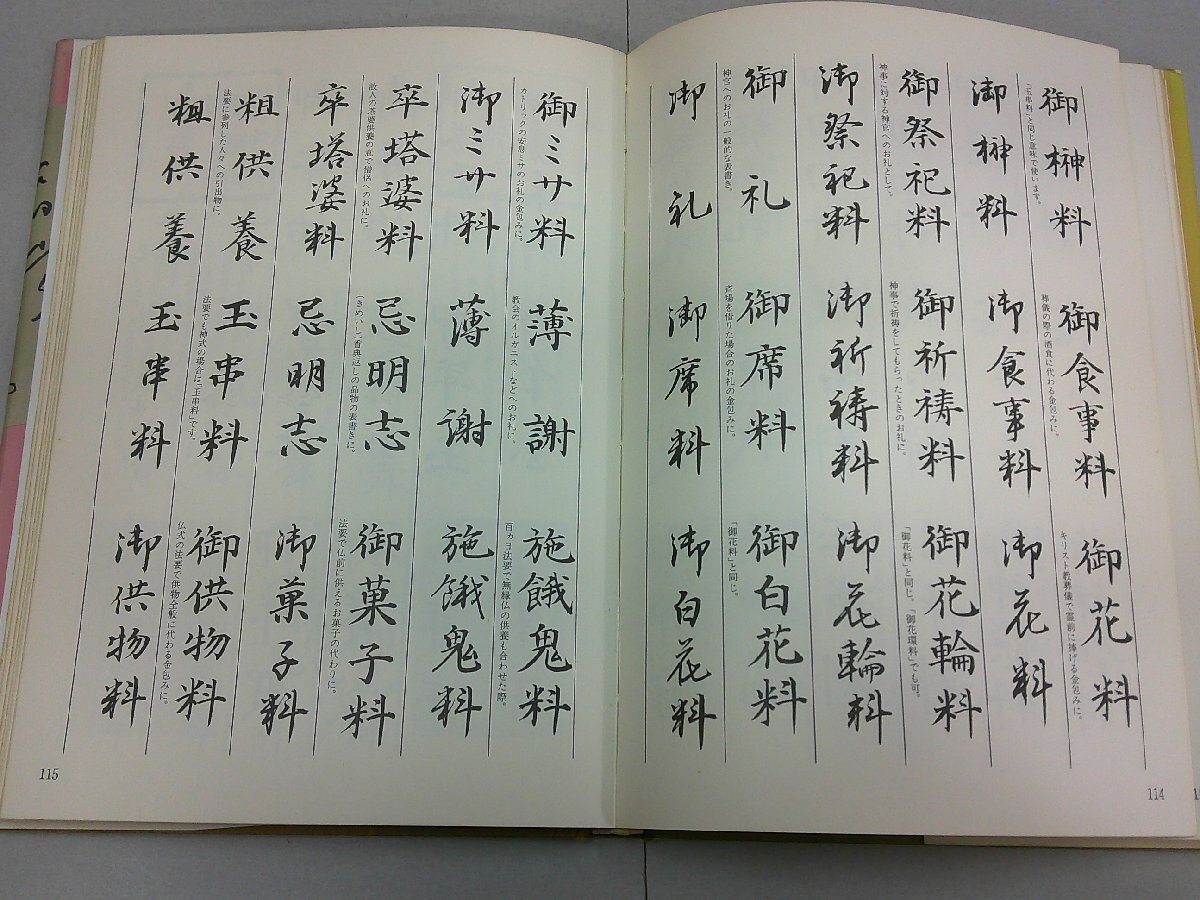 御榊料
御榊料
「玉串料」と同じ意味で使います。
御祭祀料
御祭祀料
神事に対する神官へのお礼として。
御礼
御礼
神官へのお礼の一般的な表書き。
御食事料
御食事料
葬儀の際の酒食に代わる金包みに。
御祈祷料
御祈祷料
神事で祈祷をしてもらったときのお礼に。
御席料
御席料
斎場を借りた場合のお礼の金包みに。
御花料
御花料
キリスト教葬儀で霊前に捧げる金包みに。
御花輪料
御花輪料
「御花料」と同じ。「御花環料」でも可。
御白花料
御白花料
「御花料」と同じ。
114
御ミサ料
御ミサ料
カトリックの安息ミサのお礼の金包みに。
卒塔婆料
卒塔婆料
故人の塔婆供養の意で僧侶へのお礼に。
粗供養
粗供養
法要に参列した人々への引出物に。
薄謝
薄謝
教会のオルガニストなどへのお礼に。
忌明志
忌明志
(きめいし)香典返しの品物の表書きに。
玉串料
玉串料
法要でも神式の場合に「玉串料」です。
施餓鬼料
施餓鬼料
百ヵ日法要で無縁仏の供養も合わせた際。
御菓子料
御菓子料
法要で仏前に供えるお菓子の代わりに。
御供物料
御供物料
仏式の法要で供物全般に代わる金包みに。
115